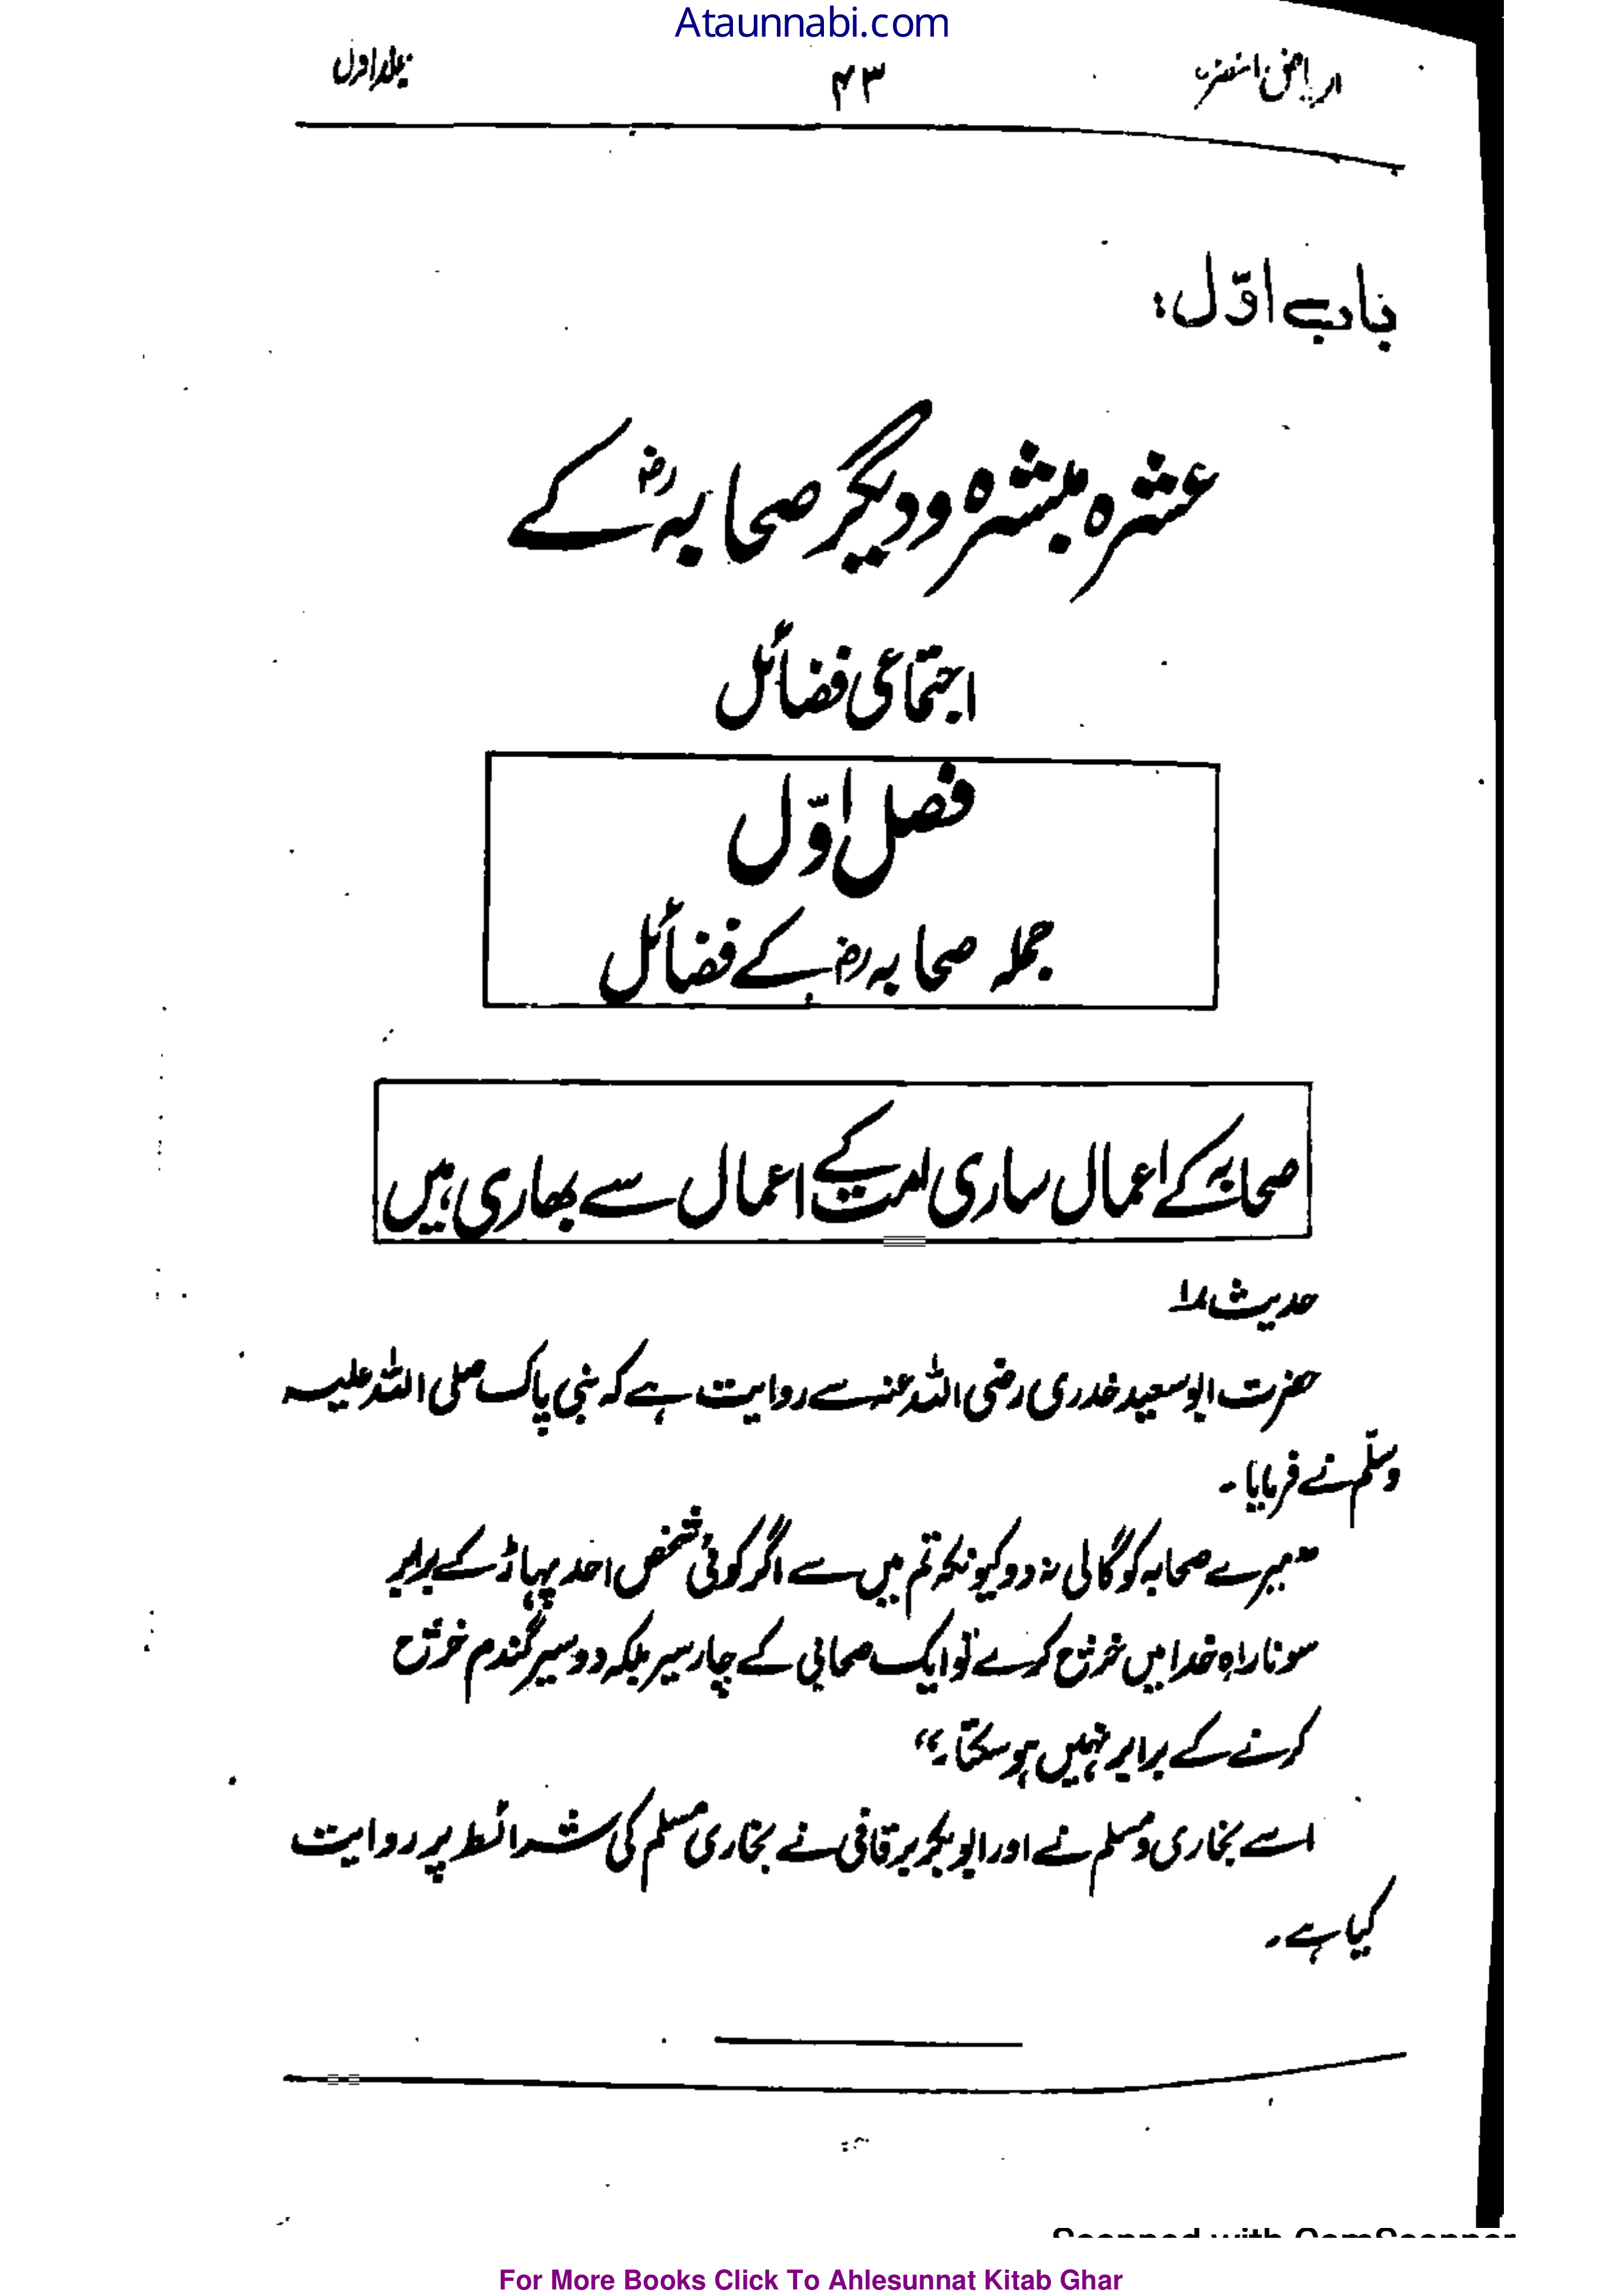 Ataunnabi.com
الریاض النضرہ ۴۳ جلد اول
باب اوّل:
عشرہ مبشرہ و دیگر صحابہ رضؓ کے
اجتماعی فضائل
فصل اوّل
جملہ صحابہ رضؓ کے فضائل
صحابہ کے اعمال ساری امت کے اعمال سے بھاری ہیں
حدیث ۱
حضرت ابو سعید خدری رضی اللہ عنہ سے روایت ہے کہ نبی پاک صلی اللہ علیہ
وسلّم نے فرمایا۔
"میرے صحابہ کو گالی نہ دو کیونکہ تم میں سے اگر کوئی شخص احد پہاڑ کے برابر
سونا راہِ خدا میں خرچ کرے تو ایک صحابی کے چار سیر بلکہ دو سیر گندم خرچ
کرنے کے برابر نہیں ہو سکتا۔"
اسے بخاری و مسلم نے اور ابوبکر برقانی نے بخاری مسلم کی شرائط پر روایت
کیا ہے۔
Scanned with CamScanner
For More Books Click To Ahlesunnat Kitab Ghar